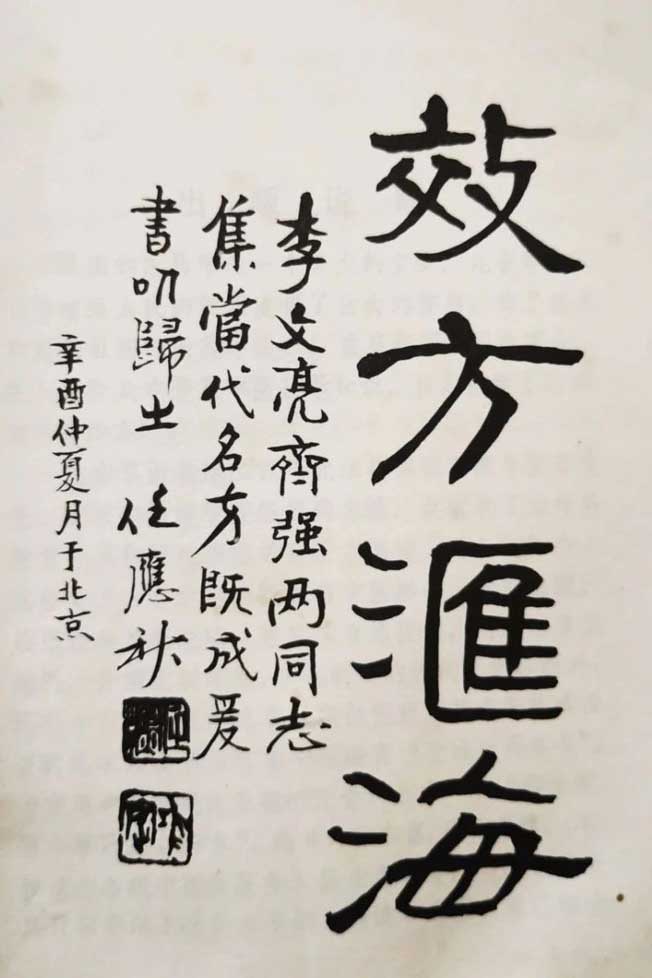 效方滙海
李文亮齊强两同志
集當代名方既成爰
書㕥歸之 任應秋
辛酉仲夏月于北京